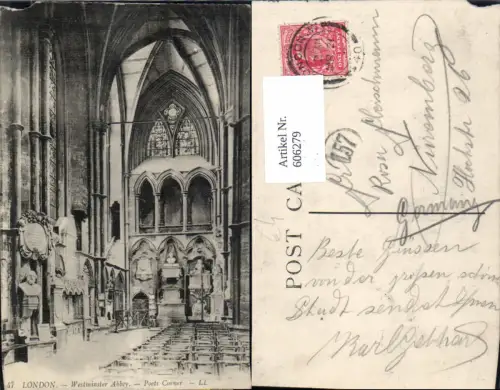 47 LONDON. — Westminster Abbey. — Poets Corner — LL.
Artikel Nr.
606279
POST CA
157
Rosa Fleischmann
Nuremberg
26
Germany
Beste Grüssen
von der grossen schön
Stadt sendet Ihnen
Karl Gebhardt